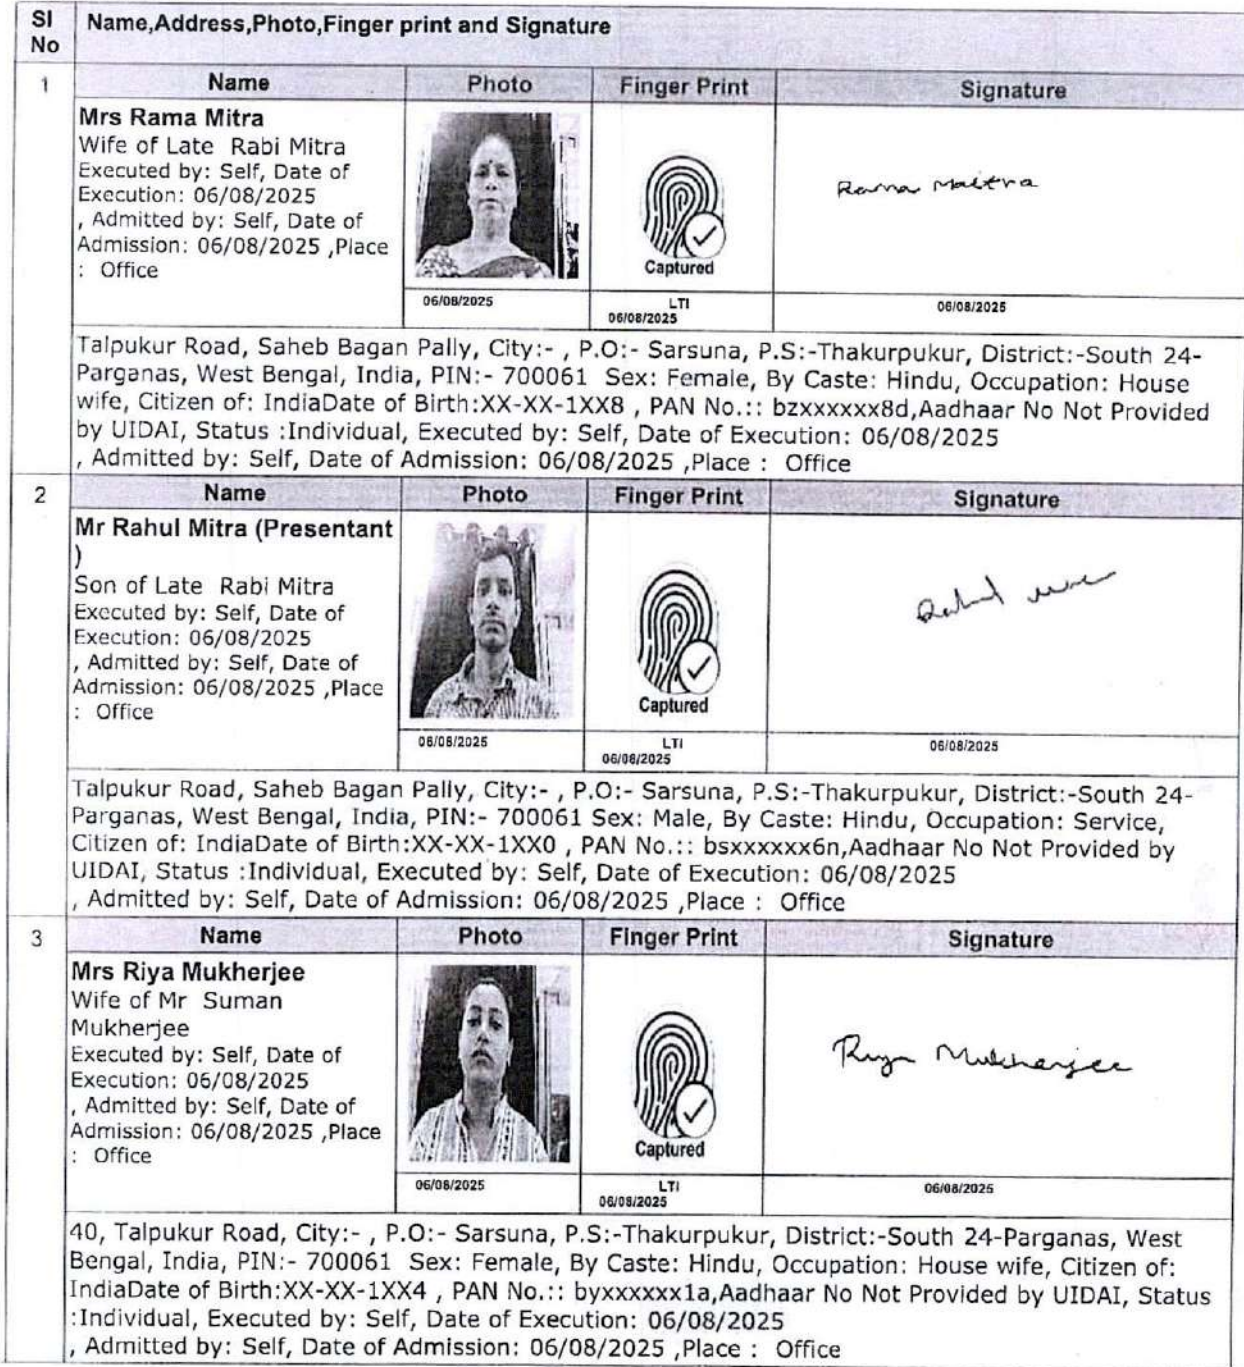 Sl No
Name,Address,Photo,Finger print and Signature
1
Name Photo Finger Print Signature
Mrs Rama Mitra
Wife of Late Rabi Mitra
Executed by: Self, Date of
Execution: 06/08/2025
, Admitted by: Self, Date of
Admission: 06/08/2025 ,Place
: Office
Captured
Rama Maitra
06/08/2025
LTI
06/08/2025
06/08/2025
Talpukur Road, Saheb Bagan Pally, City:- , P.O:- Sarsuna, P.S:-Thakurpukur, District:-South 24-
Parganas, West Bengal, India, PIN:- 700061 Sex: Female, By Caste: Hindu, Occupation: House
wife, Citizen of: IndiaDate of Birth:XX-XX-1XX8 , PAN No.:: bzxxxxxx8d,Aadhaar No Not Provided
by UIDAI, Status :Individual, Executed by: Self, Date of Execution: 06/08/2025
, Admitted by: Self, Date of Admission: 06/08/2025 ,Place : Office
2
Name Photo Finger Print Signature
Mr Rahul Mitra (Presentant
)
Son of Late Rabi Mitra
Executed by: Self, Date of
Execution: 06/08/2025
, Admitted by: Self, Date of
Admission: 06/08/2025 ,Place
: Office
Captured
Rahul
06/08/2025
LTI
06/08/2025
06/08/2025
Talpukur Road, Saheb Bagan Pally, City:- , P.O:- Sarsuna, P.S:-Thakurpukur, District:-South 24-
Parganas, West Bengal, India, PIN:- 700061 Sex: Male, By Caste: Hindu, Occupation: Service,
Citizen of: IndiaDate of Birth:XX-XX-1XX0 , PAN No.:: bsxxxxxx6n,Aadhaar No Not Provided by
UIDAI, Status :Individual, Executed by: Self, Date of Execution: 06/08/2025
, Admitted by: Self, Date of Admission: 06/08/2025 ,Place : Office
3
Name Photo Finger Print Signature
Mrs Riya Mukherjee
Wife of Mr Suman
Mukherjee
Executed by: Self, Date of
Execution: 06/08/2025
, Admitted by: Self, Date of
Admission: 06/08/2025 ,Place
: Office
Captured
Riya Mukherjee
06/08/2025
LTI
06/08/2025
06/08/2025
40, Talpukur Road, City:- , P.O:- Sarsuna, P.S:-Thakurpukur, District:-South 24-Parganas, West
Bengal, India, PIN:- 700061 Sex: Female, By Caste: Hindu, Occupation: House wife, Citizen of:
IndiaDate of Birth:XX-XX-1XX4 , PAN No.:: byxxxxxx1a,Aadhaar No Not Provided by UIDAI, Status
:Individual, Executed by: Self, Date of Execution: 06/08/2025
, Admitted by: Self, Date of Admission: 06/08/2025 ,Place : Office